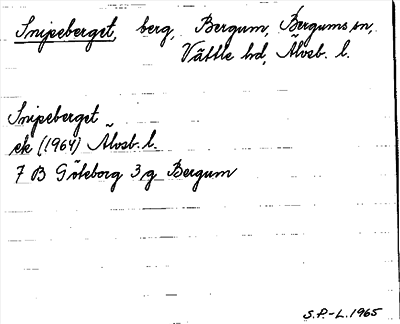 Snipeberget, berg, Bergum, Bergums sn,
Vättle hd, Älvsb. l.
Snipeberget
ek (1964) Älvsb. l.
7 B Göteborg 3 g Bergum
S.P.-L. 1965